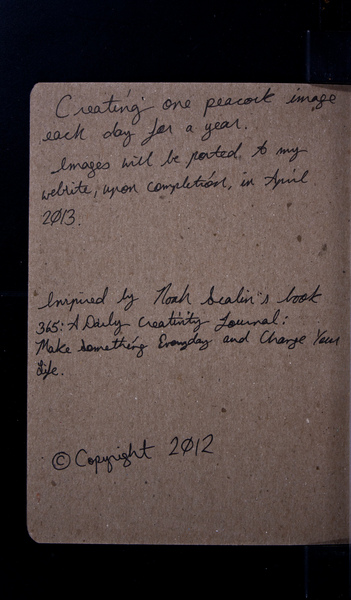 Creating one peacock image
each day for a year.
Images will be posted, to my
website, upon completion, in April
2013.
Inspired by Noah Scalin's book
365: A Daily Creativity Journal:
Make Something Everyday and Change Your
Life.
© Copyright 2012